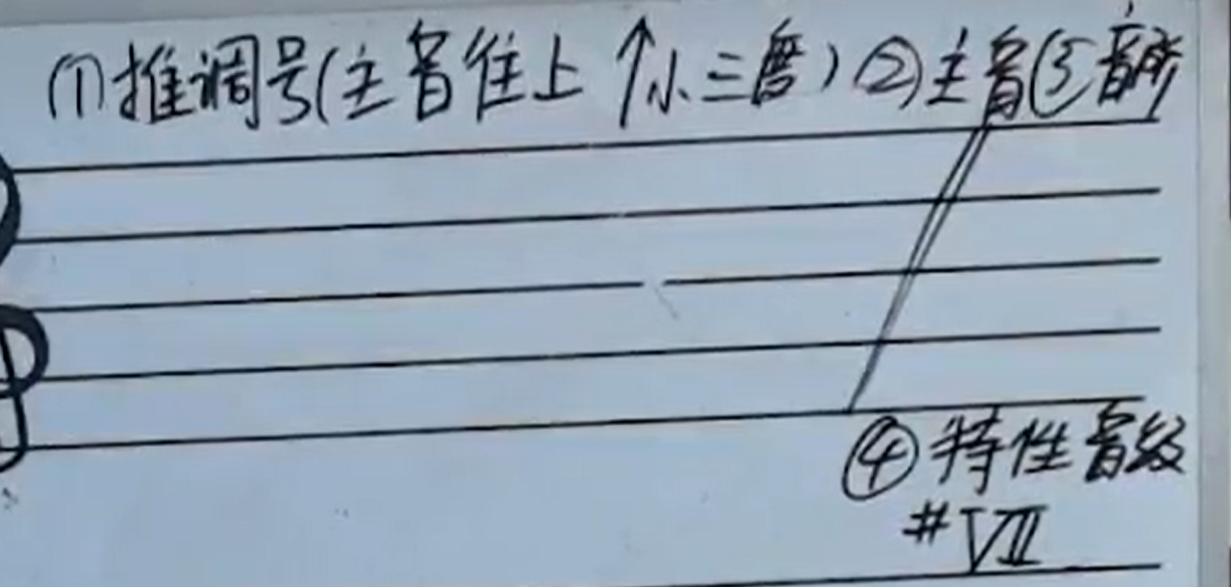 (1)推调号(主音往上↑小三度)②主音③音阶
④特性音级
#VII